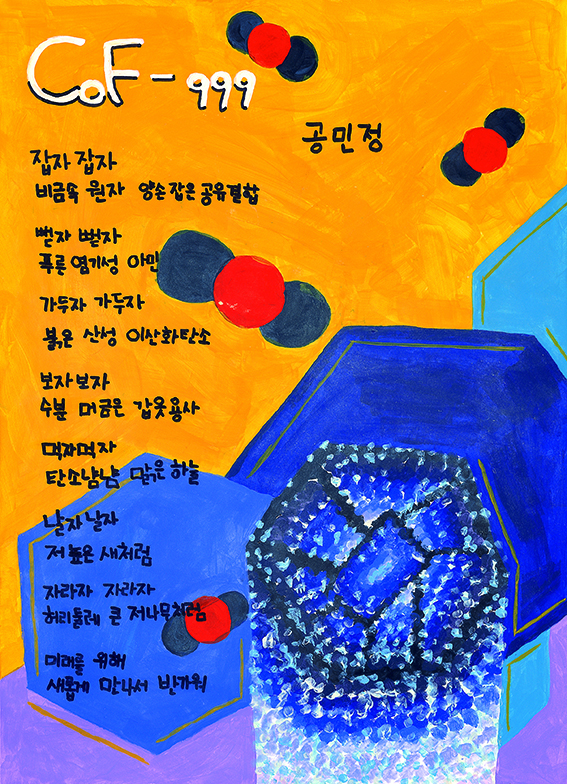 COF-999
공민정
잡자 잡자
비금속 원자 양손 잡은 공유결합
뻗자 뻗자
푸른 염기성 아민
가두자 가두자
붉은 산성 이산화탄소
보자 보자
수분 머금은 갑옷 용사
먹자먹자
탄소냠냠 맑은 하늘
날자 날자
저 높은 새처럼
자라자 자라자
허리둘레 큰 저나무처럼
미래를 위해
새롭게 만나서 반가워